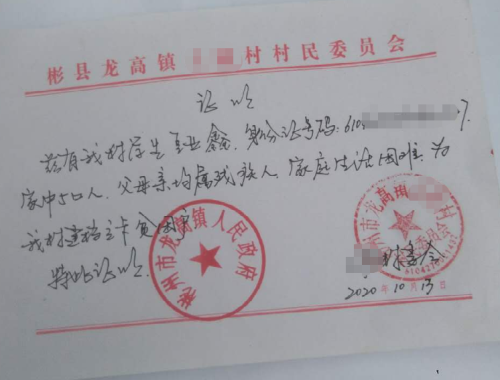 彬县龙高镇 村村民委员会
证明
兹有我村学生 鑫,身份证号码:610 7.
家中5口人,父母亲均属残疾人,家庭生活困难,为
我村建档立卡贫困户
特此证明.
彬州市龙高镇人民政府
彬州市龙高 村
村委会
2020年10月13